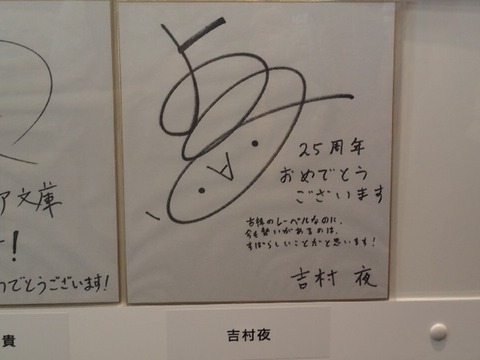 ア文庫
!
めでとうございます!
貴
25周年
おめでとう
ございます
古株のレーベルなのに、
今も勢いがあるのは、
すばらしいことかと思います!
吉村 夜
吉村夜